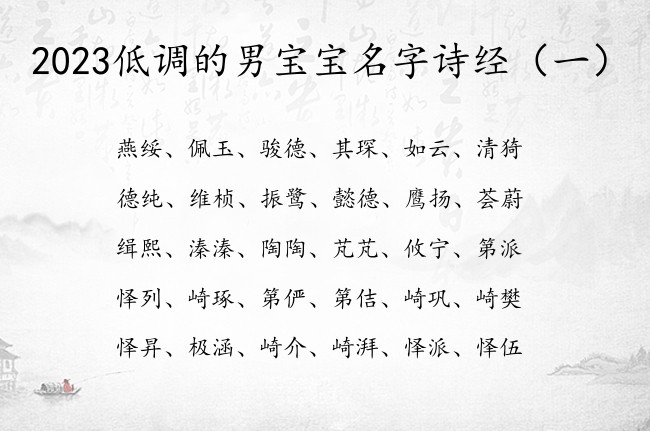 2023低调的男宝宝名字诗经（一）
燕绥、佩玉、骏德、其琛、如云、清猗
德纯、维桢、振鹭、懿德、鹰扬、荟蔚
缉熙、溱溱、陶陶、芃芃、攸宁、第派
怿列、崎琢、第俨、第佶、崎巩、崎樊
怿昇、极涵、崎介、崎湃、怿派、怿伍